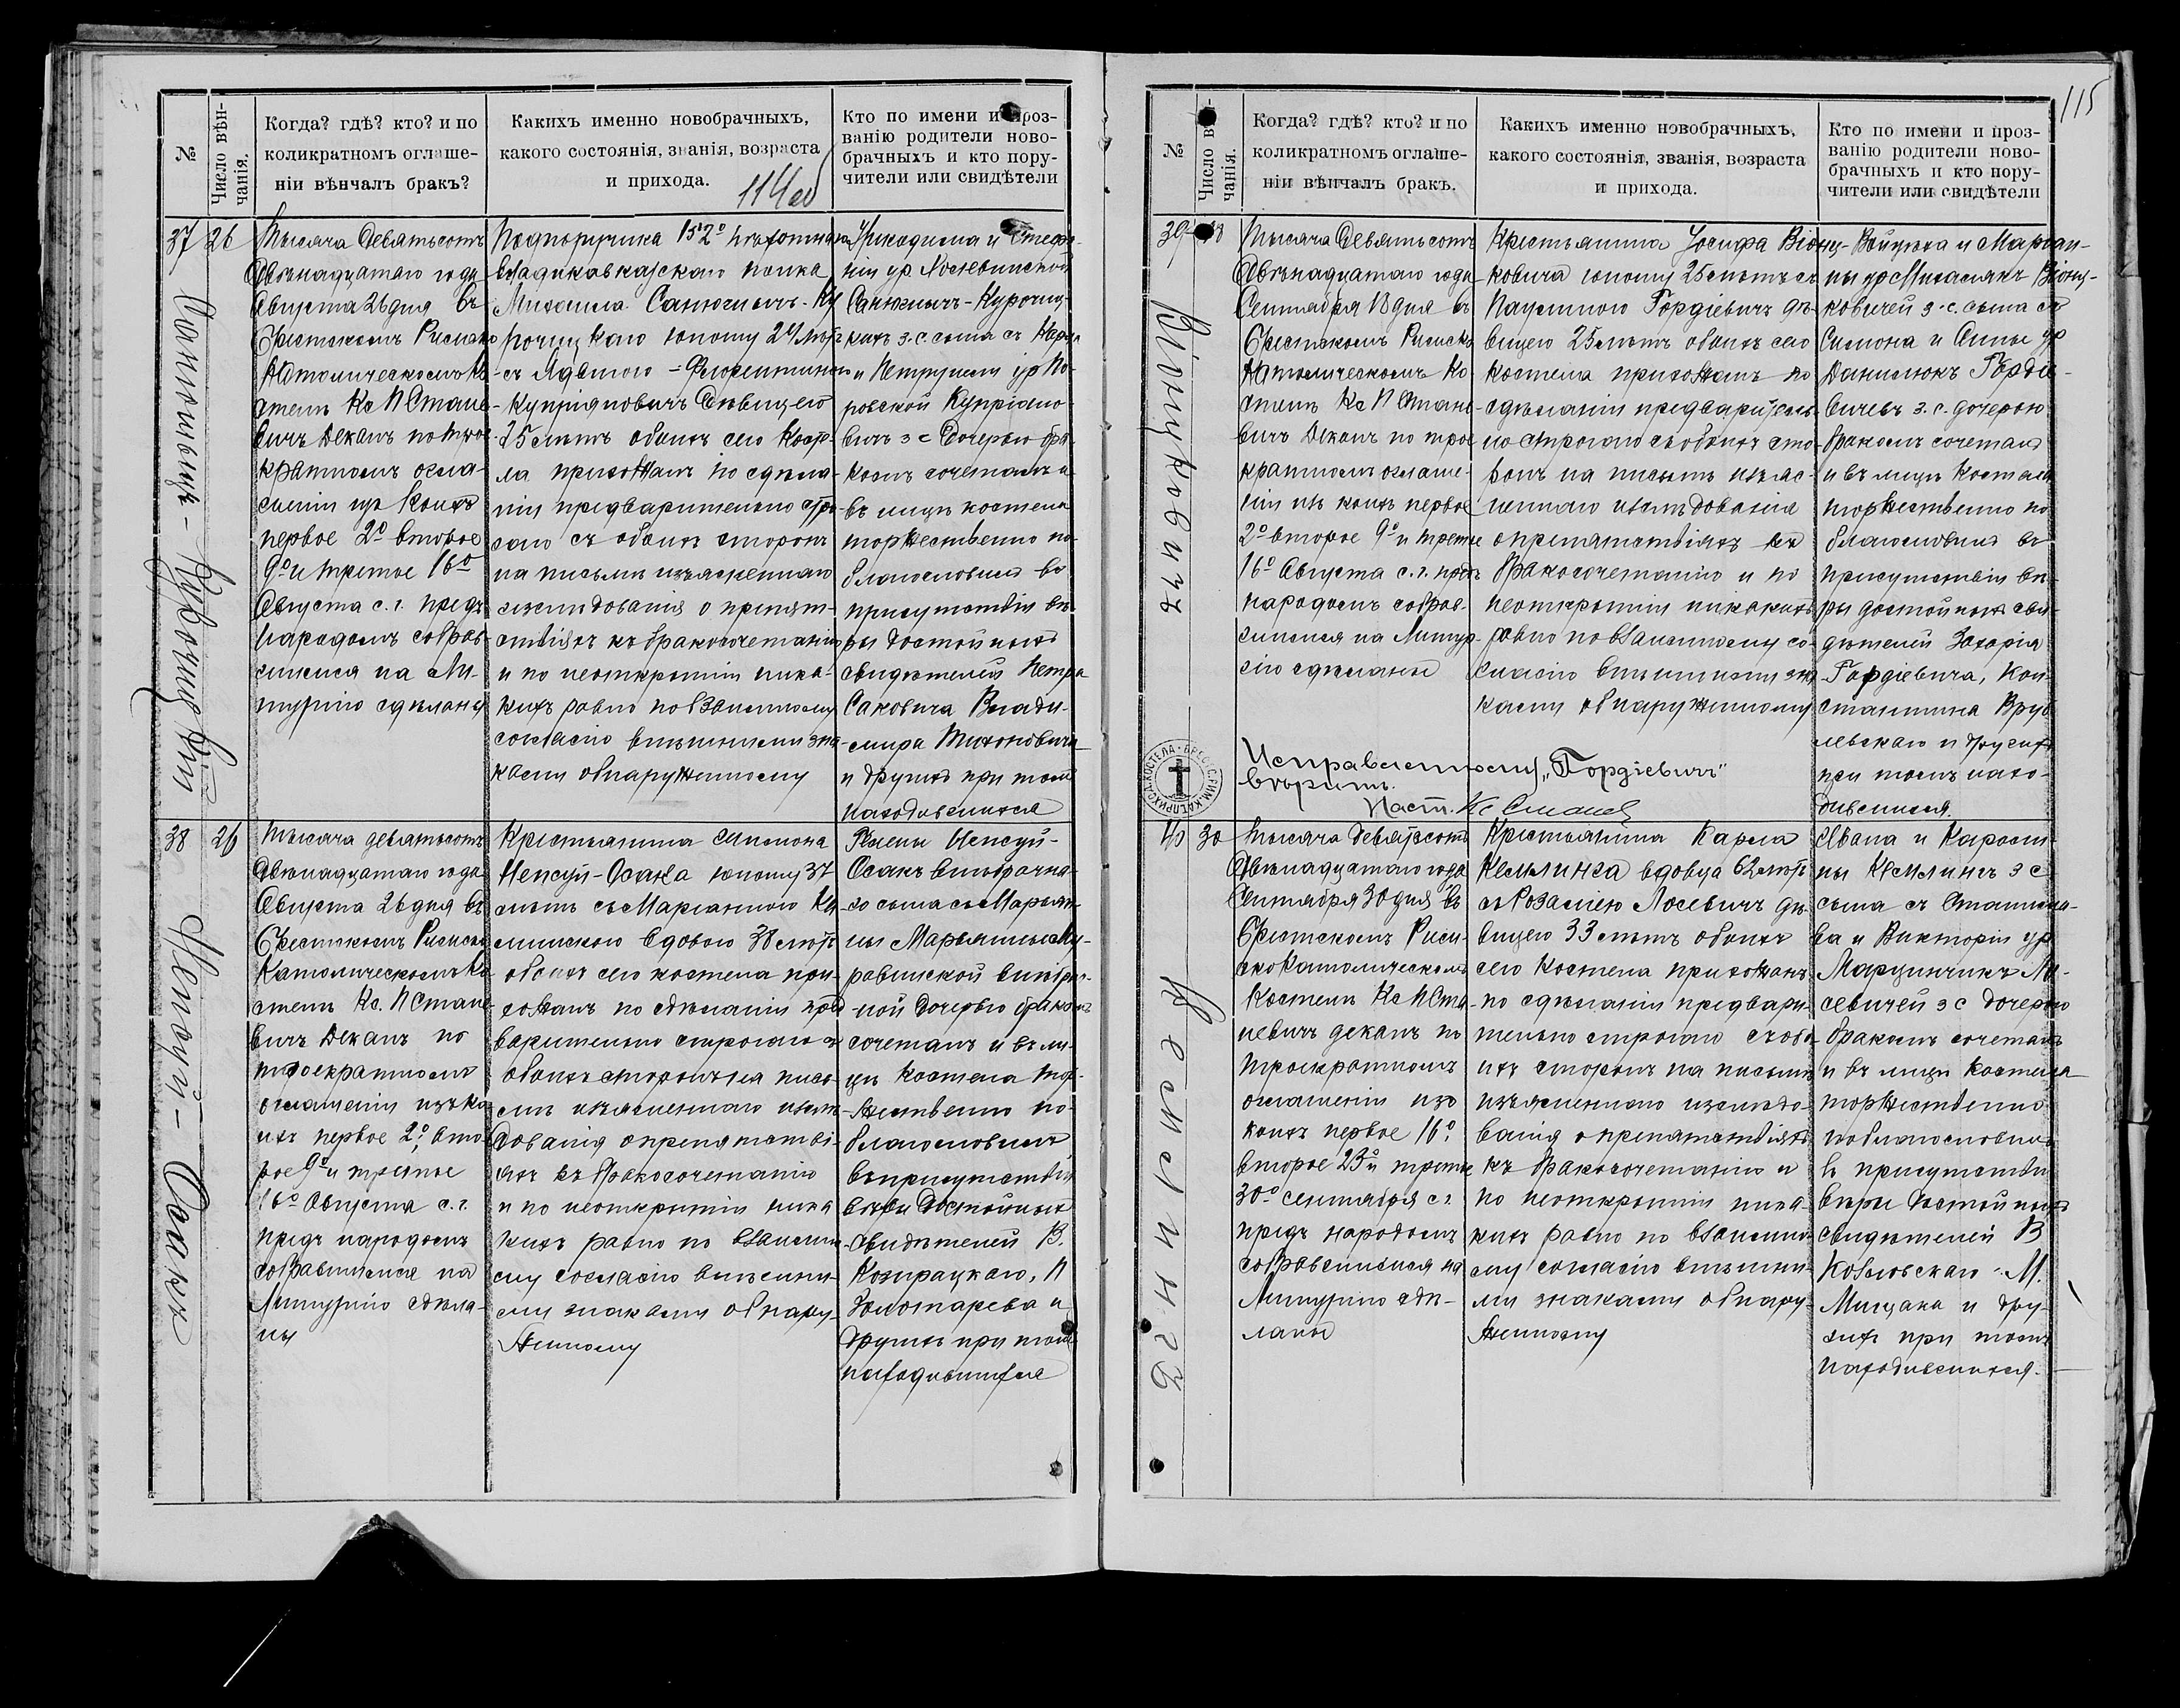 №
Число вѣн-
чанія.
Когда? гдѣ? кто? и по
коликратномъ оглаше-
ніи вѣнчалъ бракъ?
Какихъ именно новобрачныхъ,
какого состоянія, званія, возраста
и прихода.
114об
Кто по имени и проз-
ванію родители ново-
брачныхъ и кто пору-
чители или свидѣтели
37
26
Тысяча девятьсотъ
двѣнадцатаго года
Августа 26 дня въ
Брестскомъ Римско
Католическомъ Ко
стелѣ Кс П Стане
вичъ Деканъ по трое
кратномъ огла-
шеніи изъ коихъ
первое 2º второе
9º и третье 16º
Августа с. г. предъ
народомъ собрав-
шимся на Ли-
тургію сдѣланы
Подпоручика 152º пѣхотнаго
Владикавказскаго полка
Михаила Ку
рочицкаго юношу 24 лѣтъ
съ Ядвигою-Флорентиною
Купріановичъ дѣвицею
25 лѣтъ обоихъ сего косте-
ла прихожанъ по сдѣла-
ніи предварительно стро-
гаго съ обоихъ сторонъ
на письмѣ изъясненнаго
изслѣдованія о препят-
ствіяхъ къ бракосочетанію
и по неоткрытіи ника-
кихъ равно по взаимному
согласію внѣшними зна-
ками обнаруженному
Никодима и Стефа-
ніи ур
кихъ з. с. сына съ Карла
и Петрунели ур
ровской Купріано-
вичъ з с дочерью бра-
комъ сочеталъ и
въ лицѣ костела
торжественно по-
благословилъ въ
присутствіи вѣ-
ры достойныхъ
свидѣтелей Петра
Саковича Влади-
мира Тихоновича
и другихъ при томъ
находившихся
38
26
Тысяча девятьсотъ
двѣнадцатаго года
Августа 26 дня въ
Брестскомъ Римско
Католическомъ Ко
стелѣ Кс. П Стане
вичъ Деканъ по
троекратномъ
оглашеніи изъ ко
ихъ первое 2º, вто
рое 9º и третье
16º Августа с. г.
предъ народомъ
собравшимся на
Литургію сдѣла-
ны
Крестьянина Симона
Непсуй-Осака юношу 37
лѣтъ съ Маріанною
вдовою 38 лѣтъ
обоихъ сего костела при-
хожанъ по сдѣланіи пред
варительно строгаго съ
обоихъ сторонъ на пись
мѣ изъясненнаго изслѣ
дованія о препятстві-
яхъ къ бракосочетанію
и по неоткрытіи ника
кихъ равно по взаимно
му согласію внѣшни-
ми знаками обнару-
женному
Елены Непсуй-
Осакъ внѣбрачна-
го сына съ Марьян-
ны Марьянны Му-
равинской внѣбрач-
ной дочерью бракомъ
сочеталъ и въ ли-
цѣ Костела тор-
жественно по-
благословилъ
въ присутствіи
вѣры достойныхъ
свидѣтелей В.
П
Золотарева и
другихъ при томъ
находившихся
Непсуй - Осакъ
115
№
Число вѣн-
чанія.
Когда? гдѣ? кто? и по
коликратномъ оглаше-
ніи вѣнчалъ бракъ.
Какихъ именно новобрачныхъ,
какого состоянія, званія, возраста
и прихода.
Кто по имени и проз-
ванію родители ново-
брачныхъ и кто пору-
чители или свидѣтели
39
18
Віонцковичъ
Тысяча девятьсотъ
двѣнадцатаго года
Сентября 18 дня въ
Брестскомъ Римско
Католическомъ Ко
стелѣ Кс П Стане
вичъ Деканъ по трое
кратномъ оглаше-
ніи изъ коихъ первое
2º второе 9º и третье
16º Августа с. г. предъ
народомъ собрав-
шимся на Литур-
гію сдѣланы
Крестьянина Іосифа Віонц-
ковича юношу 25 лѣтъ съ
Паулиною Гордіевичъ дѣ-
вицею 25 лѣтъ обоихъ сего
костела прихожанъ по
сдѣланіи предваритель
но строгаго съ обоихъ сто
ронъ на письмѣ изъяс-
неннаго изслѣдованія
о препятствіяхъ къ
бракосочетанію и по
неоткрытіи никакихъ
равно по взаимному со-
гласію внѣшними зна
ками обнаруженному
Войцѣха и Маріан-
ны ур Михалякъ Віонц-
ковичей з. с. сына съ
Симона и Анны ур
Данилюкъ Гордіе-
вичевъ з. с. дочерью
бракомъ сочеталъ
и въ лицѣ Костела
торжественно по
благословилъ въ
присутствіи вѣ-
ры достойныхъ сви-
дѣтелей Захарія
Гордіевича, Кон-
стантина Вруб
левскаго и другихъ
при томъ нахо-
дившихся.
Исправленному „Гордіевичъ"
вѣритъ.
Наст. Кс Станев
40
30
Кемлингъ
Тысяча девятьсотъ
двѣнадцатаго года
Сентября 30 дня въ
Брестскомъ Рим-
ско Католическомъ
Костелѣ Кс П Ста-
невичъ деканъ по
троекратномъ
оглашеніи изъ
коихъ первое 16º,
второе 23º и третье
30º сентября с г.
предъ народомъ
собравшимися на
Литургію сдѣ-
ланы
Крестьянина Карла
Кемлинга вдовца 62 лѣтъ
съ Розалією Лосевичъ дѣ-
вицею 33 лѣтъ обоихъ
сего Костела прихожанъ
по сдѣланіи предвари-
тельно строгаго съ обо-
ихъ сторонъ на письмѣ
изъясненнаго изслѣдо-
ванія о препятствіяхъ
къ бракосочетанію и
по неоткрытіи ника-
кихъ равно по взаимно
му согласію внѣшни-
ми знаками обнару-
женному
Ивана и Кароли-
ны Кемлингъ з с
сына съ Станисла-
ва и Викторіи ур
Марцинчикъ Ло-
севичей з с дочерью
бракомъ сочеталъ
и въ лицѣ Костела
торжественно
поблагословилъ
въ присутствіи
вѣры достойныхъ
свидѣтелей В
Козловскаго М.
Мищака и дру-
гихъ при томъ
находившихся.